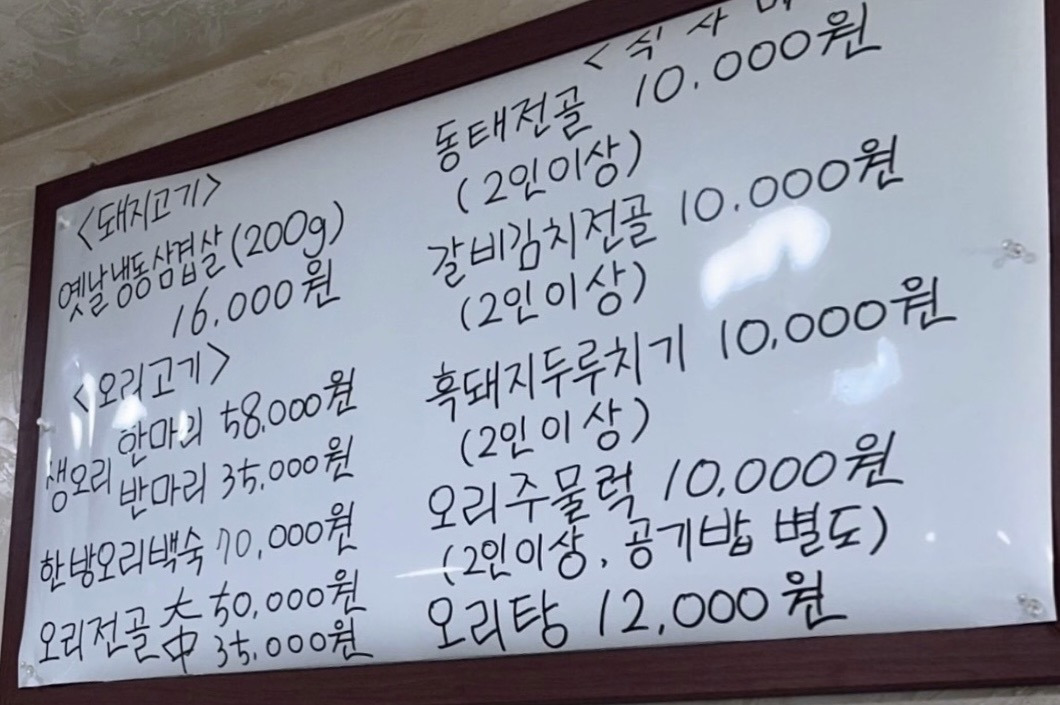 <돼지고기>
옛날냉동삼겹살(200g)
16,000원
<오리고기>
생오리 한마리 58,000원
반마리 35,000원
한방오리백숙 70,000원
오리전골 大 50,000원
中 35,000원
<식사
동태전골 10.000원
(2인이상)
갈비김치전골 10.000원
(2인이상)
흑돼지두루치기 10,000원
(2인이상)
오리주물럭 10,000원
(2인이상, 공기밥 별도)
오리탕 12,000원